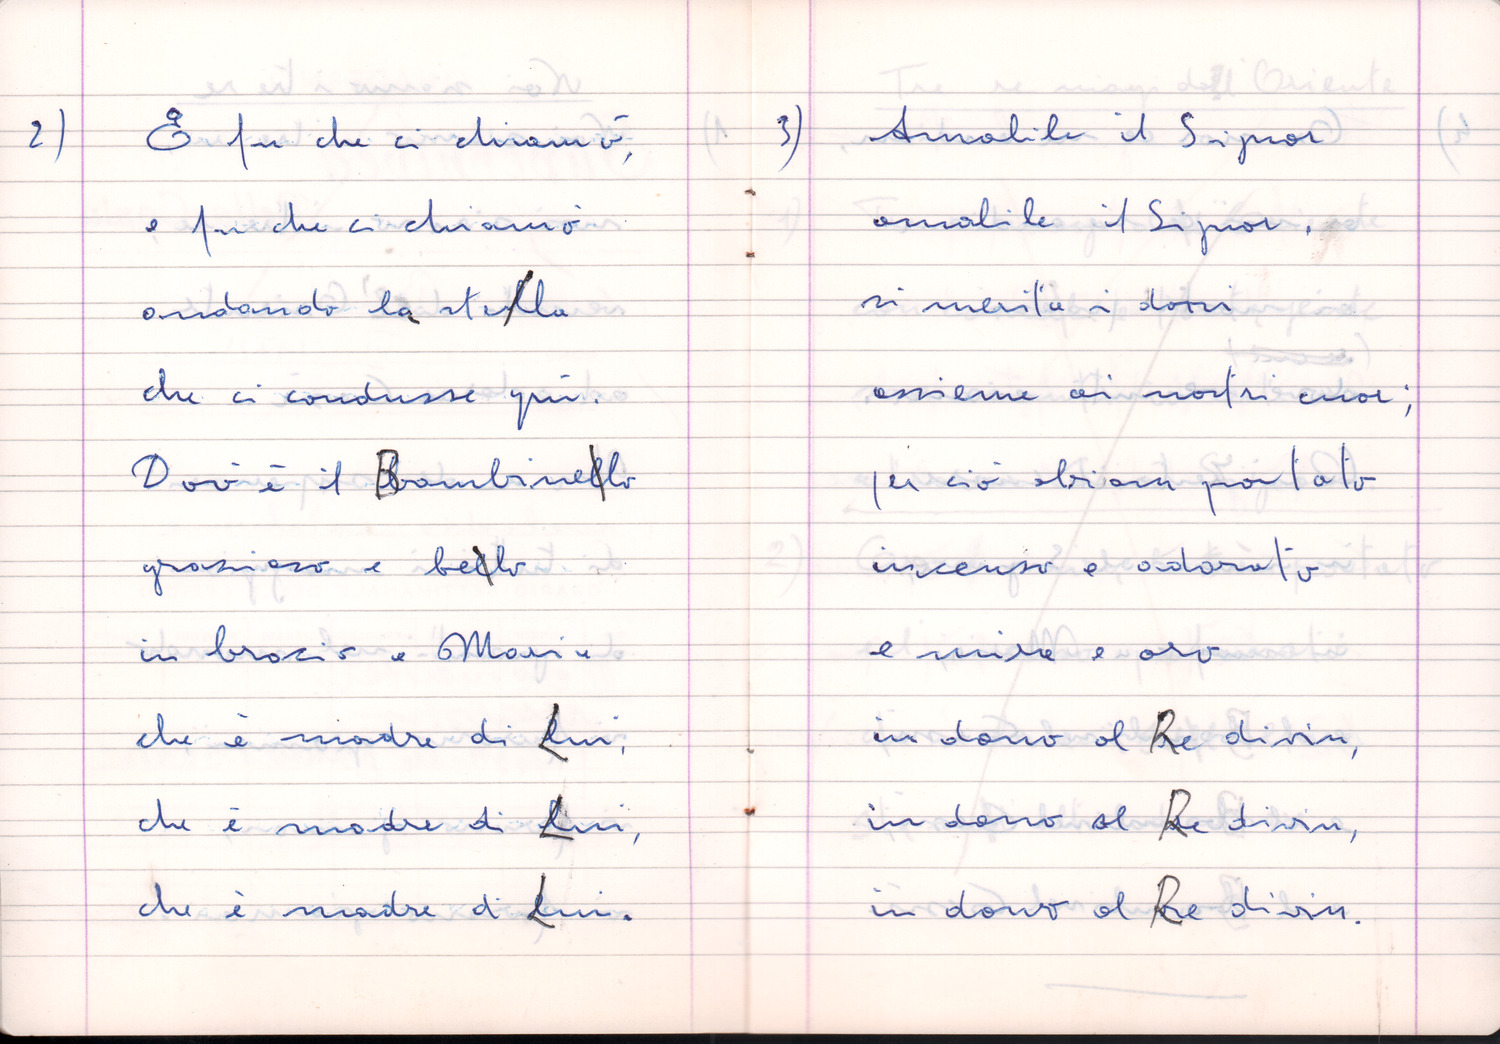 2)
E fu che ci chiamò,
e fu che ci chiamò
andando la stella
che ci condusse qui.
Dov'è il Bambinello
grazioso e bello
in braccio a Maria
che è madre di Lui,
che è madre di Lui,
che è madre di Lui.
3)
Amabile il Signor
amabile il Signor,
si merita i doni
assieme ai nostri cuor;
per ciò abiam portato
incenso e odorato
e mira e oro
in dono al Re divin,
in dono al Re divin,
in dono al Re divin.